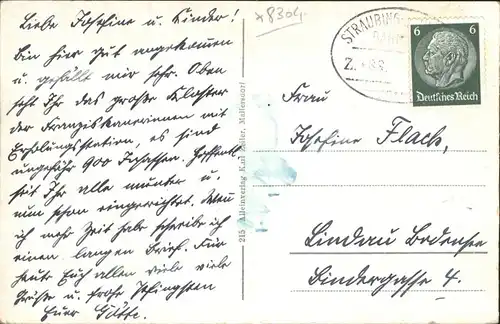 Liebe Josefine u. Kinder!
Bin hier gut angekommen
u. gefällt mir sehr. Oben
seht Ihr das große Kloster
der Franziskanerinnen mit
Erholungsstation, es sind
ungefähr 900 Insassen. Hoffentl.
seit Ihr alle munter u.
nun schon eingerichtet. Wenn
ich mehr Zeit habe schreibe ich
einen langen Brief. Für
heute Euch allen viele viele
Grüße u. frohe Pfingsten
Euer Götte.
215 Alleinverlag Karl Mallersdorf
*8304
STRAUBING
BAHN
Z.
6 6
Deutsches Reich
Frau
Josefine Flach,
Lindau Bodensee
Bindergasse 4.